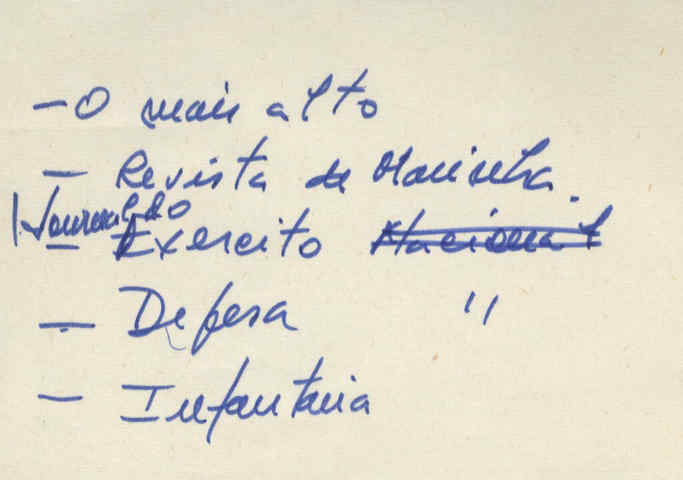 - O mais alto
- Revista de Marinha.
Journal do
- Exercito Nacional
- Defesa "
- Infantaria